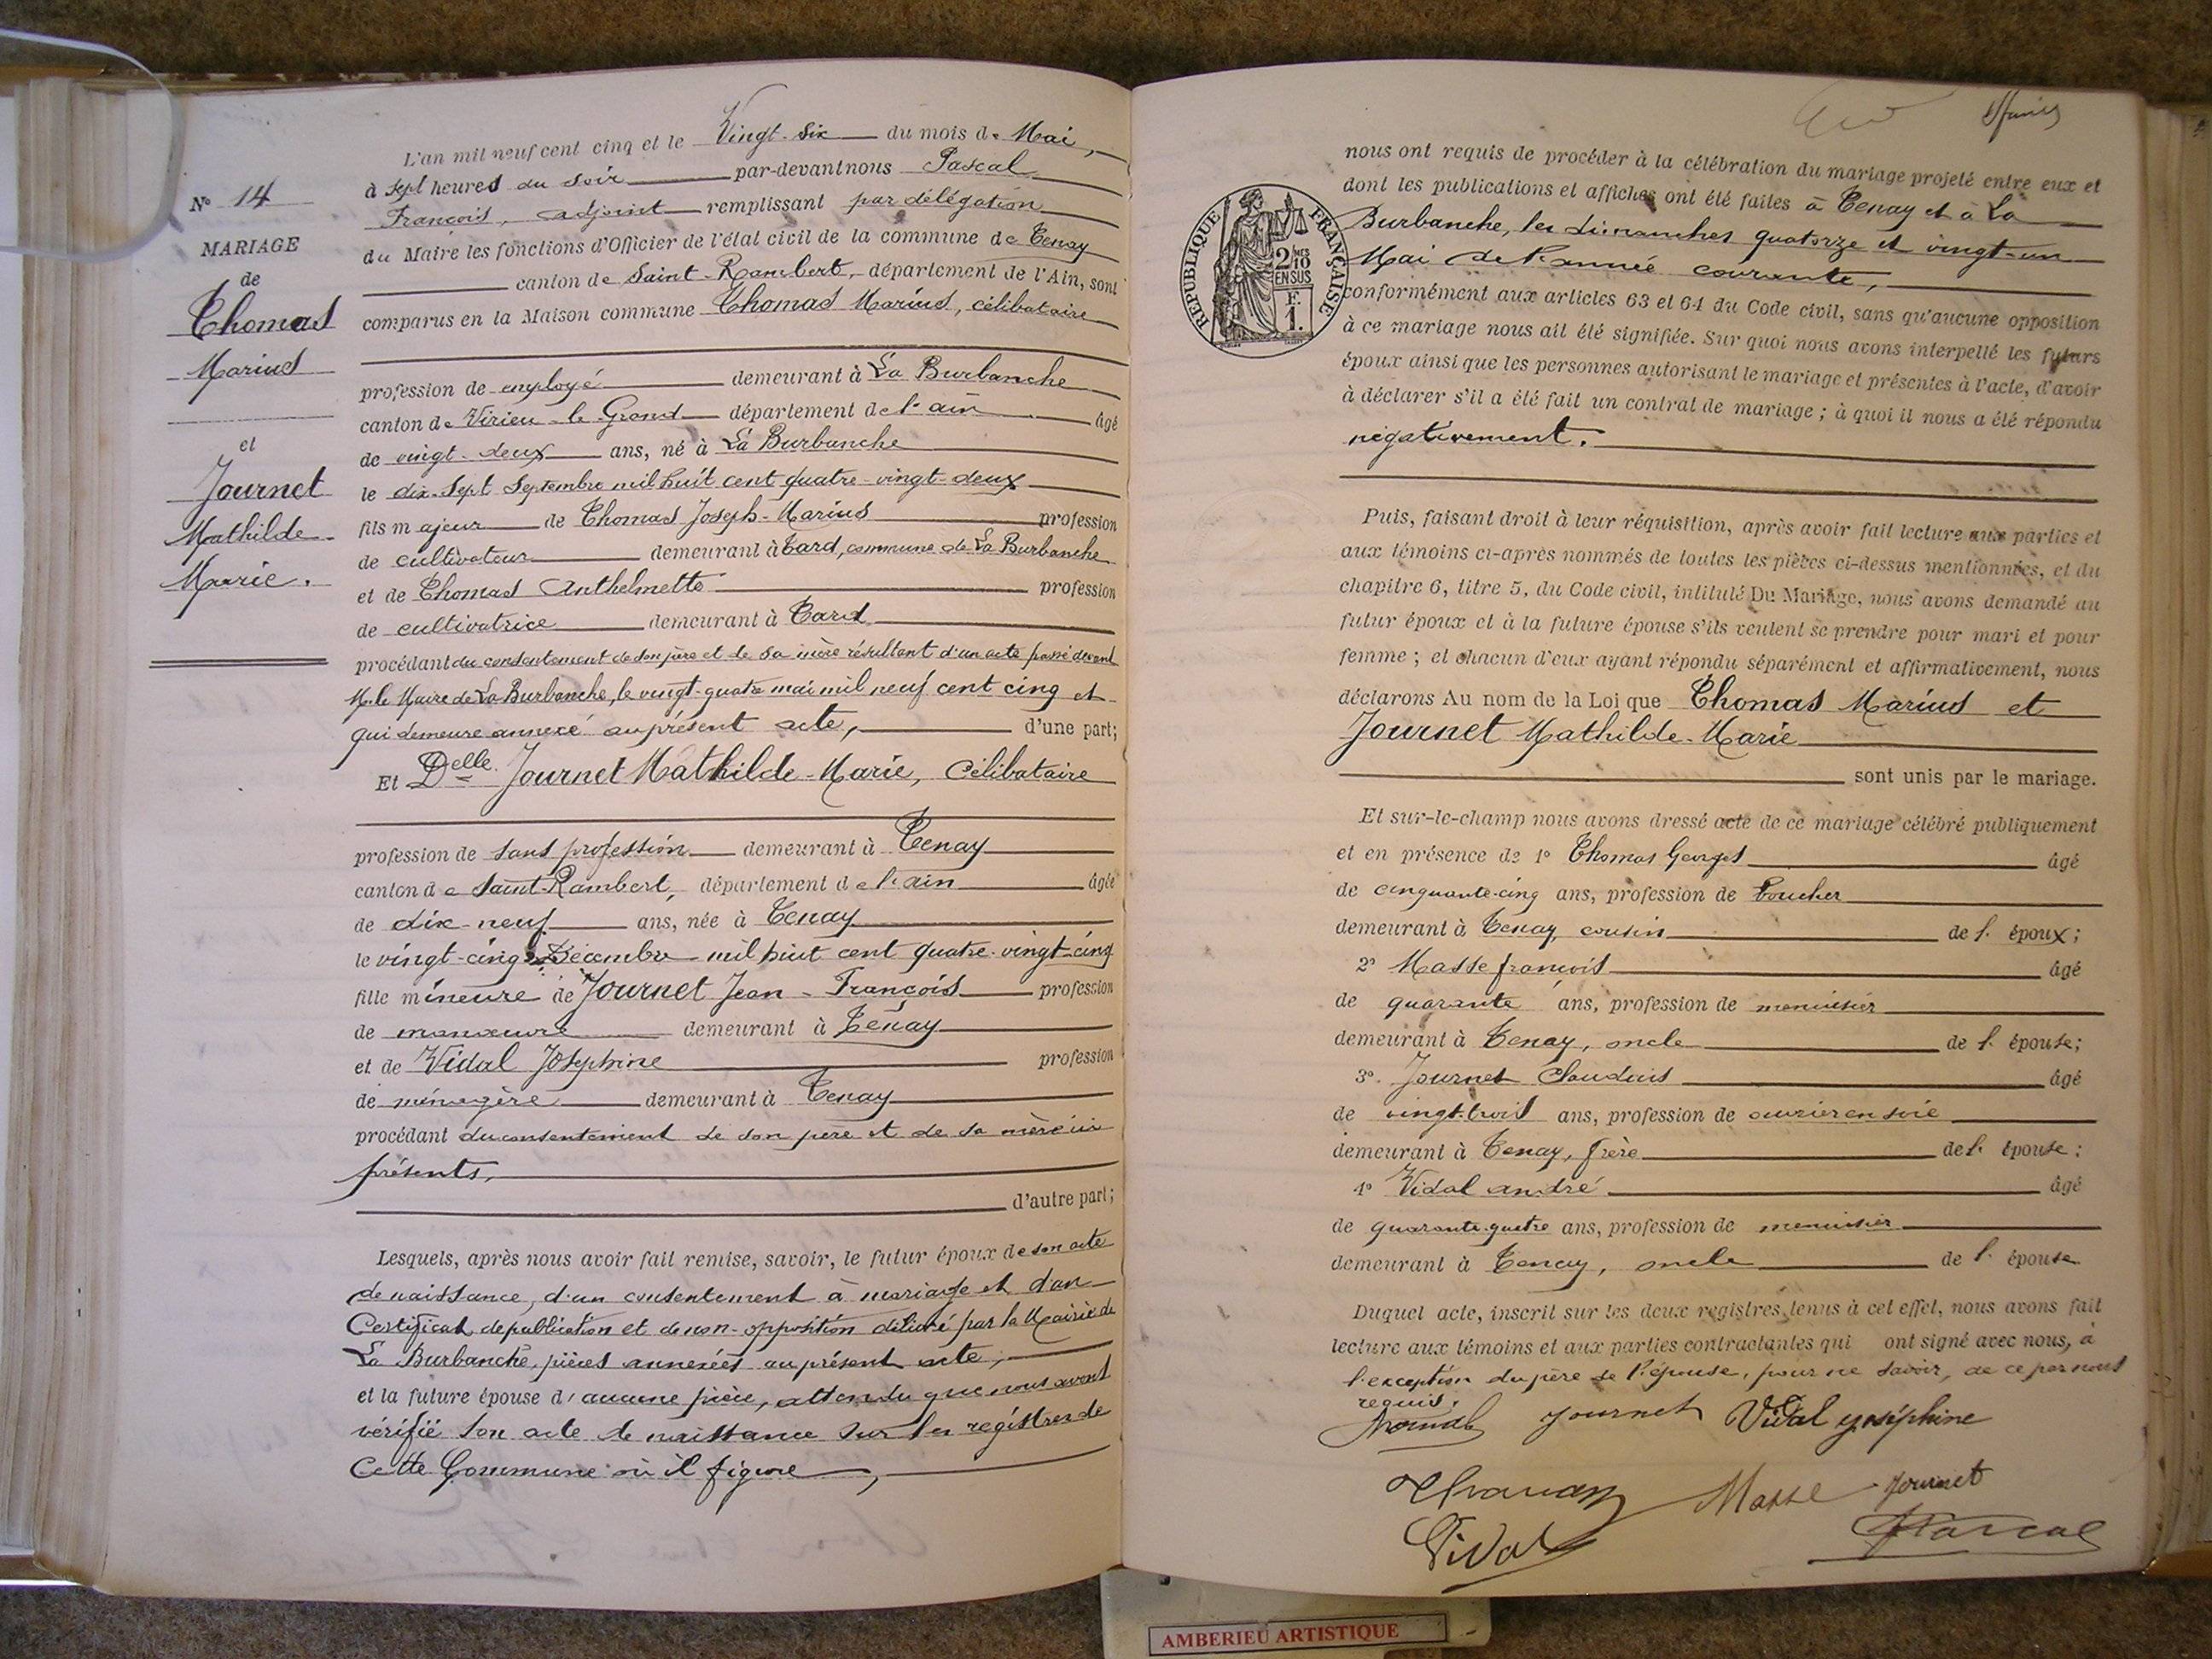 N° 14
MARIAGE
de
Thomas
Marius
et
Journet
Mathilde
Marie.
L'an mil neuf cent cinq et le Vingt-six du mois de Mai,
à sept heures du soir par-devant nous Pascal
François, adjoint remplissant par délégation
du Maire les fonctions d'Officier de l'état civil de la commune de Tenay
canton de Saint-Rambert, département de l'Ain, sont
comparus en la Maison commune Thomas Marius, célibataire
profession de employé demeurant à La Burbanche
canton de Virieu-le-Grand département de l'ain âgé
de vingt-deux ans, né à La Burbanche
le dix-sept Septembre mil huit cent quatre-vingt-deux
fils majeur de Thomas Joseph-Marius profession
de cultivateur demeurant à Tard, commune de La Burbanche
et de Thomas Anthelmette profession
de cultivatrice demeurant à Tard
procédant du consentement de son père et de sa mère résultant d'un acte passé devant
M. le Maire de La Burbanche, le vingt-quatre mai mil neuf cent cinq et
qui demeure annexé au présent acte, d'une part;
Et Delle Journet Mathilde-Marie, célibataire
profession de sans profession demeurant à Tenay
canton de Saint-Rambert, département de l'ain âgée
de dix-neuf ans, née à Tenay
le vingt-cinq Décembre mil huit cent quatre-vingt-cinq
fille mineure de Journet Jean-François profession
de manœuvre demeurant à Tenay
et de Vidal Joséphine profession
de ménagère demeurant à Tenay
procédant du consentement de son père et de sa mère ici
présents,
d'autre part;
Lesquels, après nous avoir fait remise, savoir, le futur époux de son acte
de naissance, d'un consentement à mariage et d'un
Certificat de publication et de non-opposition délivré par la Mairie de
La Burbanche, pièces annexées au présent acte,
et la future épouse d'aucune pièce, attendu que nous avons
vérifié son acte de naissance sur les registres de
Cette Commune où il figure,
RÉPUBLIQUE FRANÇAISE
2/10 EN SUS
F.
1.
nous ont requis de procéder à la célébration du mariage projeté entre eux et
dont les publications et affiches ont été faites à Tenay et à La
Burbanche, les dimanches quatorze et vingt-un
Mai de l'année courante,
conformément aux articles 63 et 64 du Code civil, sans qu'aucune opposition
à ce mariage nous ait été signifiée. Sur quoi nous avons interpellé les futurs
époux ainsi que les personnes autorisant le mariage et présentes à l'acte, d'avoir
à déclarer s'il a été fait un contrat de mariage; à quoi il nous a été répondu
négativement.
Puis, faisant droit à leur réquisition, après avoir fait lecture aux parties et
aux témoins ci-après nommés de toutes les pièces ci-dessus mentionnées, et du
chapitre 6, titre 5, du Code civil, intitulé Du Mariage, nous avons demandé au
futur époux et à la future épouse s'ils veulent se prendre pour mari et pour
femme; et chacun d'eux ayant répondu séparément et affirmativement, nous
déclarons Au nom de la Loi que Thomas Marius et
Journet Mathilde-Marie
sont unis par le mariage.
Et sur-le-champ nous avons dressé acte de ce mariage célébré publiquement
et en présence de 1° Thomas Georges âgé
de cinquante-cinq ans, profession de boucher
demeurant à Tenay, cousin de l'époux;
2° Masse françois âgé
de quarante ans, profession de menuisier
demeurant à Tenay, oncle de l'épouse;
3° Journet Claudius âgé
de vingt-trois ans, profession de ouvrier en soie
demeurant à Tenay, frère de l'épouse;
4° Vidal andré âgé
de quarante-quatre ans, profession de menuisier
demeurant à Tenay, oncle de l'épouse
Duquel acte, inscrit sur les deux registres tenus à cet effet, nous avons fait
lecture aux témoins et aux parties contractantes qui ont signé avec nous, à
l'exception du père de l'épouse, pour ne savoir, de ce par nous
requis.
Thomas Journet Vidal joséphine
Thomas Masse Journet
Vidal Pascal
AMBERIEU ARTISTIQUE